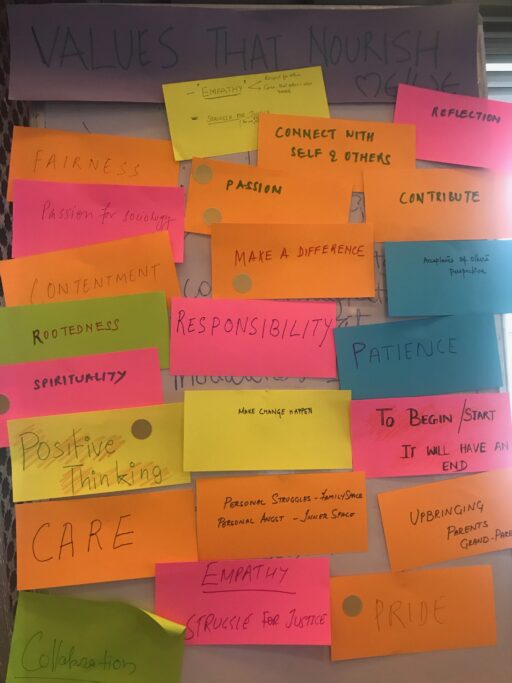 VALUES THAT NOURISH
ME/WE
"EMPATHY"
Respect for others
STRUGGLE FOR JUSTICE
REFLECTION
CONNECT WITH
SELF & OTHERS
FAIRNESS
PASSION
CONTRIBUTE
Passion for sociology
MAKE A DIFFERENCE
Acceptance of others
perspective
CONTENTMENT
ROOTEDNESS
RESPONSIBILITY
PATIENCE
SPIRITUALITY
MAKE CHANGE HAPPEN
TO BEGIN/START
IT WILL HAVE AN
END
Positive
Thinking
PERSONAL STRUGGLES - FAMILY SPACE
PERSONAL ANGST - INNER SPACE
UPBRINGING
PARENTS
GRAND-PARE
CARE
EMPATHY
STRUGGLE FOR JUSTICE
PRIDE
Collaboration